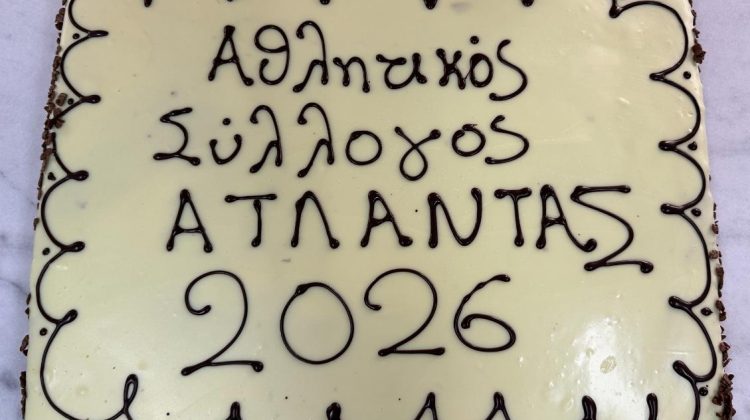 Αθλητικός
Σύλλογος
ΑΤΛΑΝΤΑΣ
2026